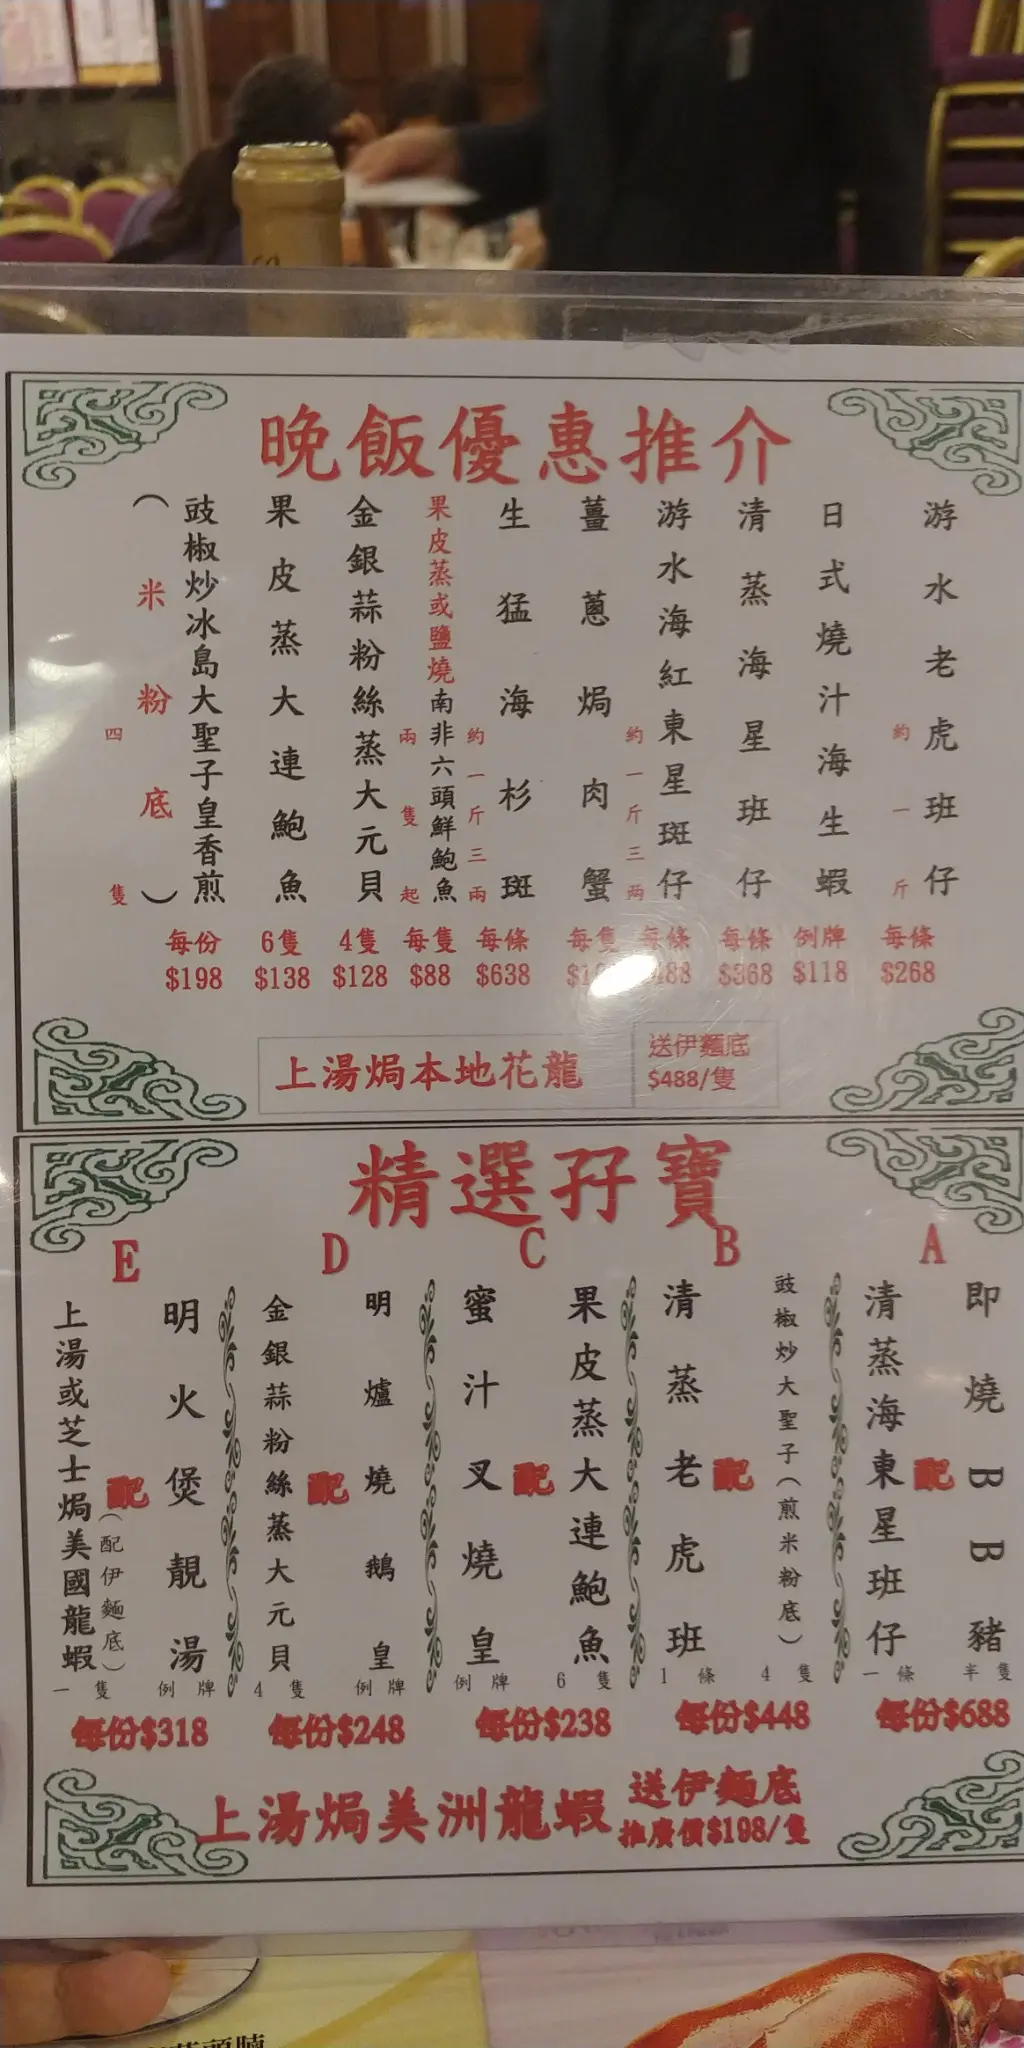 晚飯優惠推介
游水老虎班仔
約一斤
每條
$268
日式燒汁海生蝦
例牌
$118
清蒸海星班仔
每條
$368
游水海紅東星斑仔
約一斤三两
每條
薑蔥焗肉蟹
每隻
生猛海杉斑
約一斤三兩
每條
$638
果皮蒸或鹽燒南非六頭鮮鮑魚
兩隻起
每隻
$88
金銀蒜粉絲蒸大元貝
4隻
$128
果皮蒸大連鮑魚
6隻
$138
豉椒炒冰島大聖子皇香煎
(米粉底)
四隻
每份
$198
上湯焗本地花龍
送伊麵底
$488/隻
精選孖寶
A
即燒BB豬
半隻
配
清蒸海東星班仔
一條
每份$688
B
豉椒炒大聖子(煎米粉底)
4隻
配
清蒸老虎班
1條
每份$448
C
果皮蒸大連鮑魚
6隻
配
蜜汁叉燒皇
例牌
每份$238
D
明爐燒鵝皇
例牌
配
金銀蒜粉絲蒸大元貝
4隻
每份$248
E
明火煲靚湯
例牌
配
上湯或芝士焗美國龍蝦
(配伊麵底)
一隻
每份$318
上湯焗美洲龍蝦
送伊麵底
推廣價$198/隻